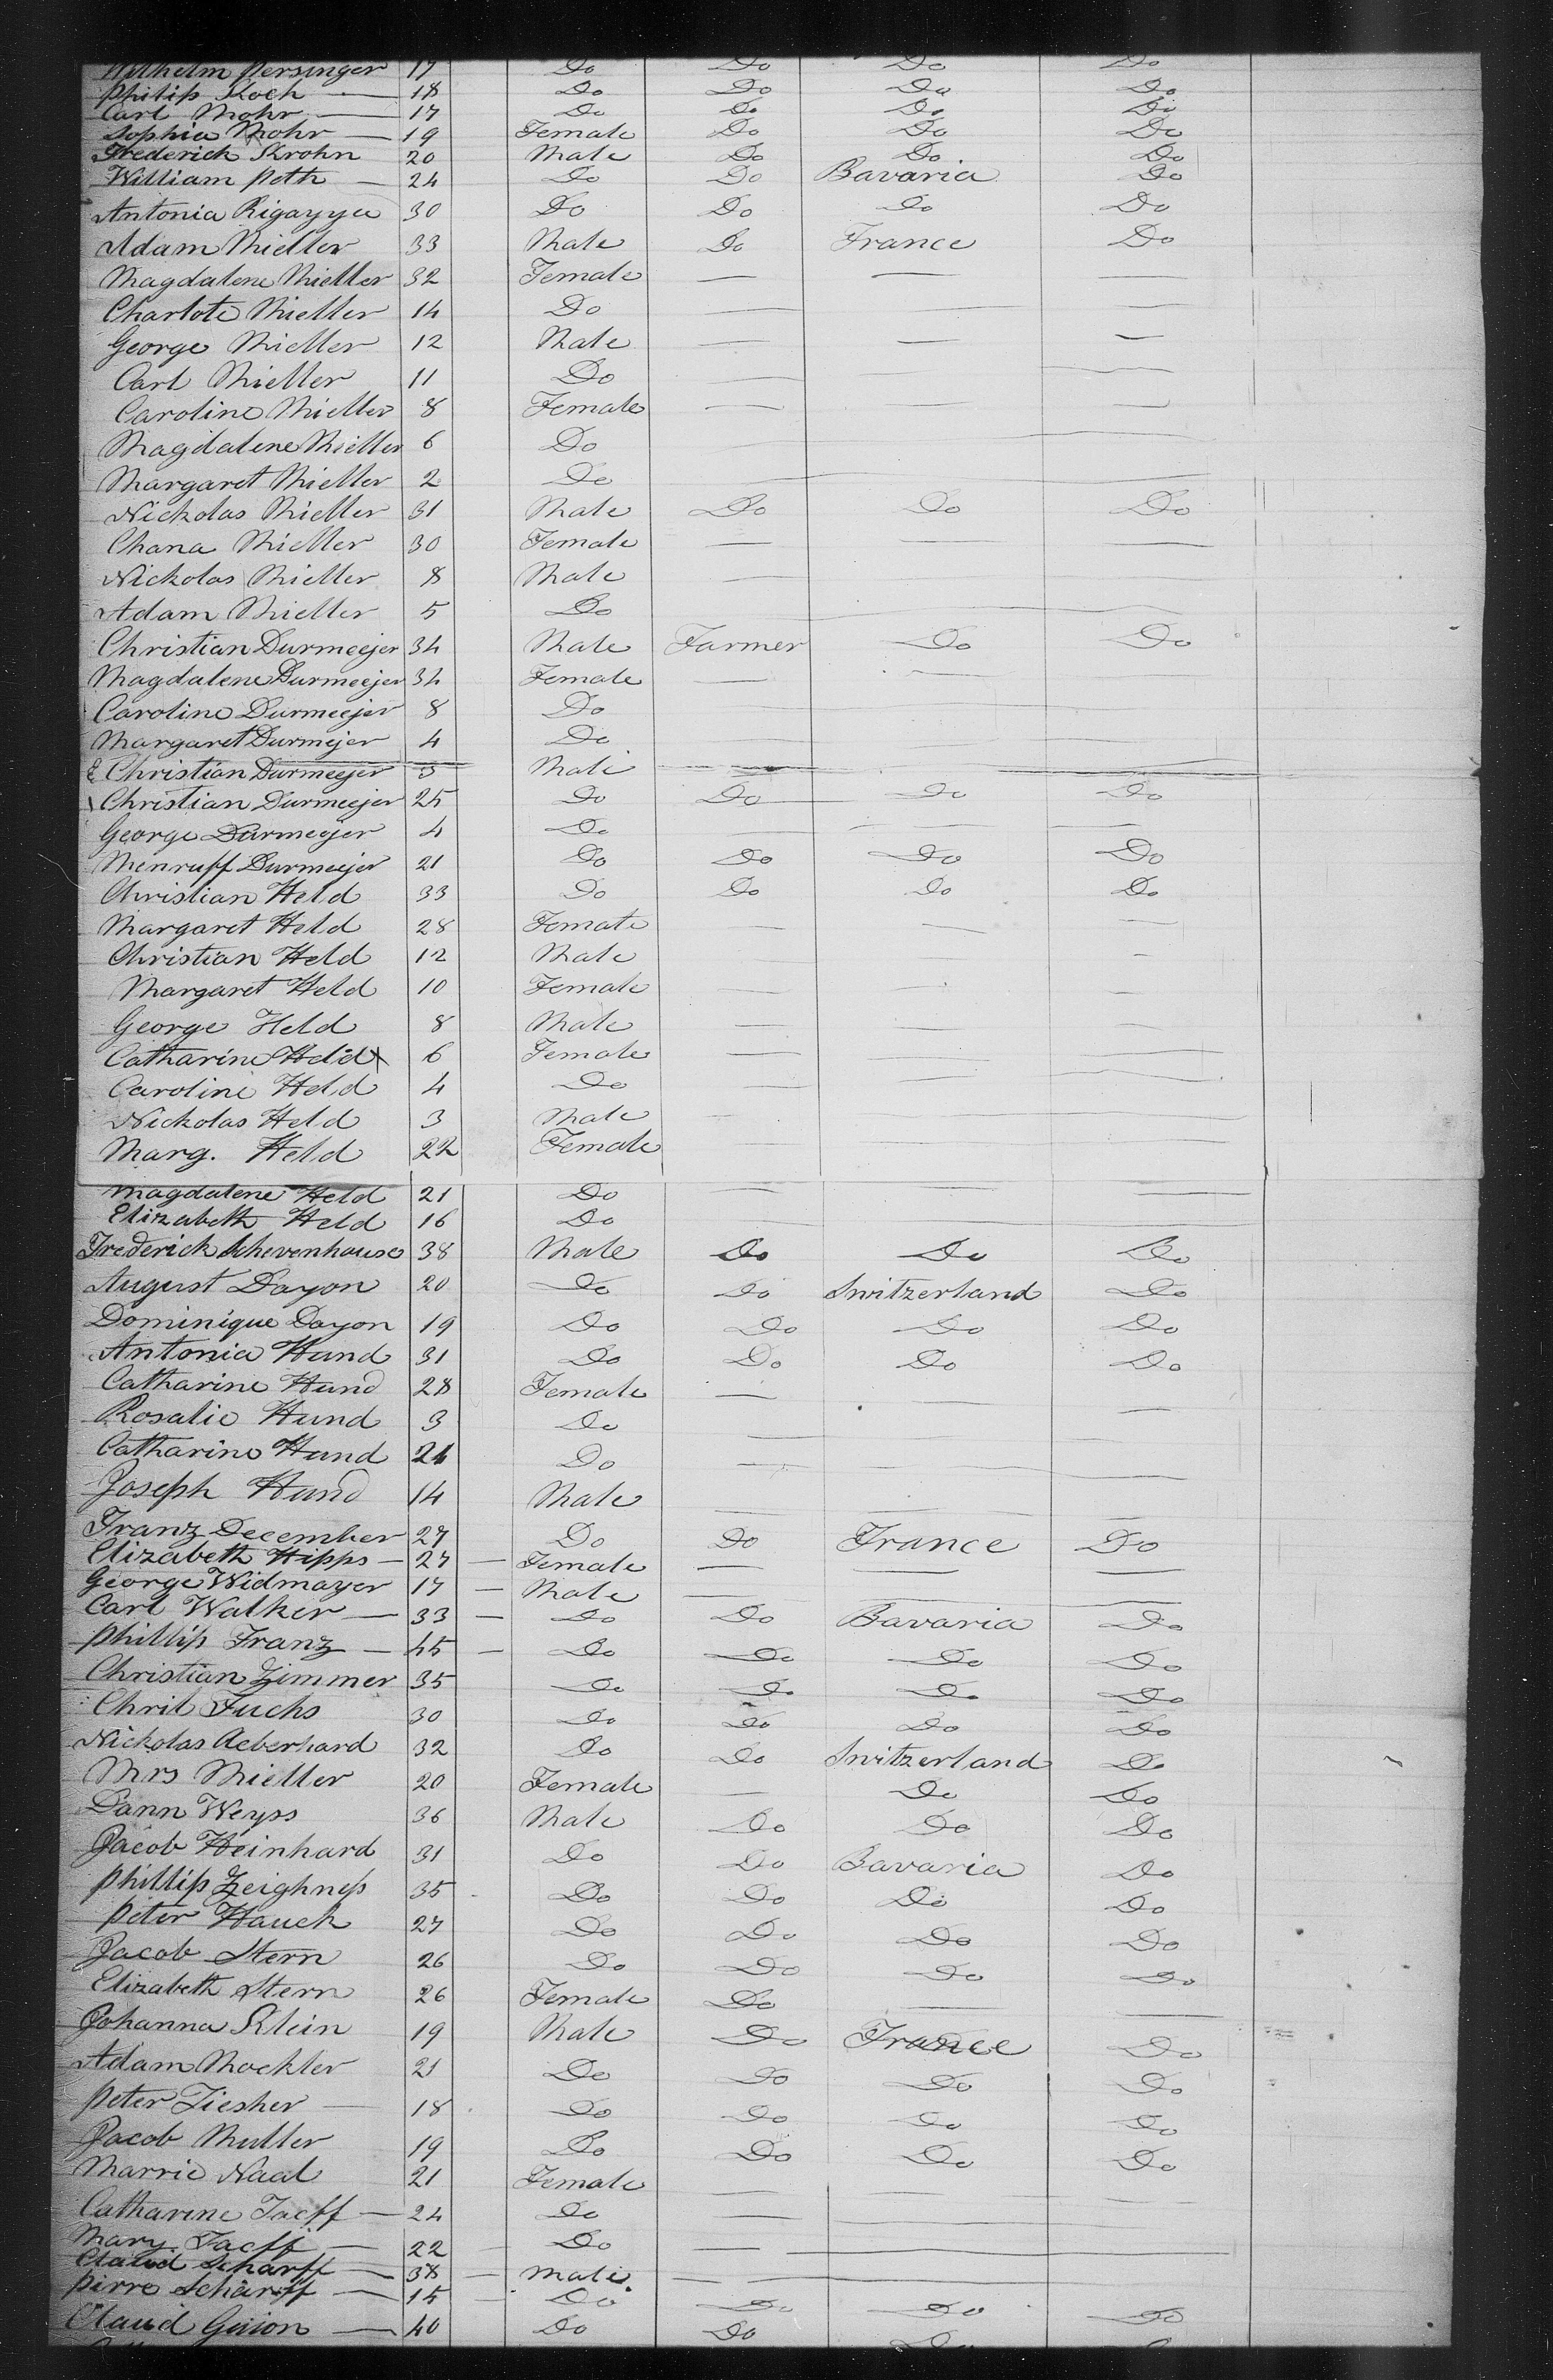 Wilhelm Persinger 17 Do Do Do Do
Philip Koch — 18 Do Do Do Do
Carl Mohr — 17 Do Do Do Do
Sophia Mohr — 19 Female Do Do Do
Frederick Krohn 20 Male Do Do Do
William Poth — 24 Do Do Bavaria Do
Antonia Rigayya 30 Do Do Do Do
Adam Mieller 33 Male Do France Do
Magdalene Mieller 32 Female — — —
Charlote Mieller 14 Do — — —
George Mieller 12 Male — — —
Carl Mieller 11 Do — — —
Caroline Mieller 8 Female — — —
Magdalene Mieller 6 Do — —
Margaret Mieller 2 Do — —
Nickolas Mieller 31 Male Do Do Do
Chana Mieller 30 Female — —
Nickolas Mieller 8 Male — —
Adam Mieller 5 Do —
Christian Durmeejer 34 Male Farmer Do Do
Magdalene Durmeejer 34 Female — —
Caroline Durmeejer 8 Do —
Margaret Durmejer 4 Do —
Christian Durmeejer 3 Male —
Christian Durmeejer 25 Do Do Do Do
George Durmeejer 4 Do — — —
Menruff Durmeejer 21 Do Do Do Do
Christian Held 33 Do Do Do Do
Margaret Held 28 Female — — —
Christian Held 12 Male — — —
Margaret Held 10 Female — — —
George Held 8 Male — — —
Catharine Held x 6 Female — — —
Caroline Held 4 Do — — —
Nickolas Held 3 Male — —
Marg. Held 22 Female — —
Magdalene Held 21 Do — — —
Elizabeth Held 16 Do — —
Frederick Schevenhause 38 Male Do Do Do
August Dayon 20 Do Do Switzerland Do
Dominique Dayon 19 Do Do Do Do
Antonia Hund 31 Do Do Do Do
Catharine Hund 28 Female — — —
Rosalie Hund 3 Do — — —
Catharine Hund 21 Do — — —
Joseph Hund 14 Male — — —
Franz December 27 Do Do France Do
Elizabeth Hipps — 27 — Female — — —
George Widmayer 17 — Male — — —
Carl Walker — 33 — Do Do Bavaria Do
Phillip Franz — 45 — Do Do Do Do
Christian Zimmer 35 Do Do Do Do
Chril Fuchs 30 Do Do Do Do
Nickolas Aeberhard 32 Do Do Switzerland Do
Mrs Mieller 20 Female — Do Do
Dann Weyss 36 Male Do Do Do
Jacob Heinhard 31 Do Do Bavaria Do
Phillip Zeighness 35 Do Do Do Do
Peter Hauck 27 Do Do Do Do
Jacob Stern 26 Do Do Do Do
Elizabeth Stern 26 Female Do — —
Johanna Klein 19 Male Do France Do
Adam Mockler 21 Do Do Do Do
Peter Tiesher — 18 Do Do Do Do
Jacob Muller 19 Do Do Do Do
Marrie Naal 21 Female — — —
Catharine Tacff — 24 Do — —
Mary Tacff — 22 Do — —
Claud Scharff — 38 — Male — —
Pirre Scharff — 15 Do Do Do Do
Claud Guion — 40 Do Do Do